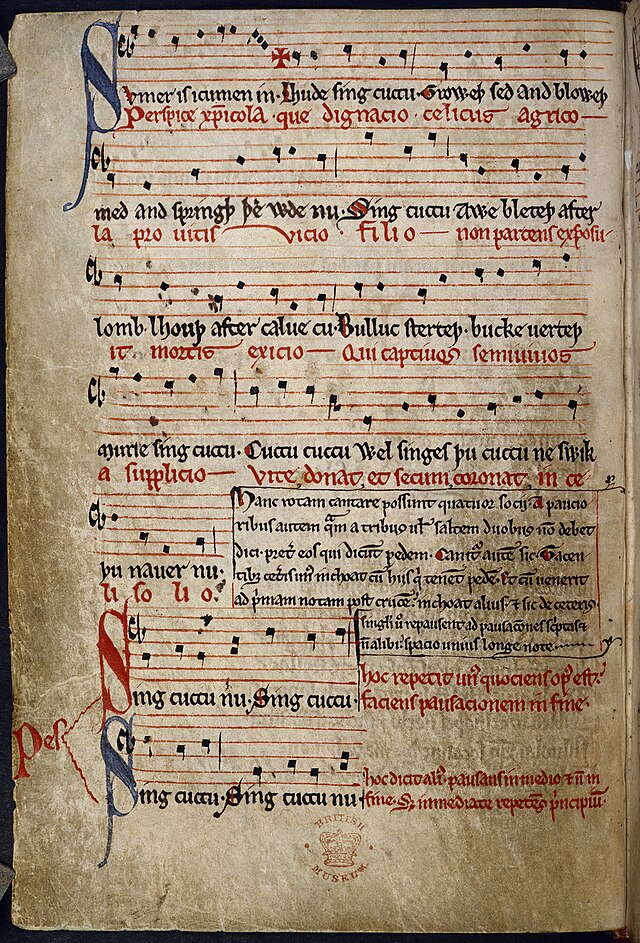 Svmer is icumen in. Lhude sing cuccu. Groweþ sed and bloweþ
Perspice xp̄icola. que dignacio. celicus agrico
med and springþ þe wde nu. Sing cuccu Awe bleteþ after
la pro uitis vicio filio non parcens exposu
lomb. lhouþ after calue cu. Bulluc sterteþ. bucke uerteþ
it mortis exicio Qui captiuos semiuiuos
murie sing cuccu. Cuccu cuccu Wel singes þu cuccu ne swik
a supplicio Vite donat, et secum coronat in ce
þu nauer nu.
li so li o.
Hanc rotam cantare possunt quatuor socij. A paucio
ribus autem quā a tribus ul' saltem duobus nō debet
dici. pret' eos qui dicūt pedem. Canit' autē sic. Tacen
tib; ceteris un' inchoat cū hiis q' tenēt pedē. Et cū uenerit
ad p'mam notam post crucē. inchoat alius. & sic de ceteris
singli u' repausent ad pausac̄ones sc'ptas &
n̄ alibi. spacio unius longe note
Sing cuccu nu. Sing cuccu.
hoc repetit un' quociens op' est.
faciens pausacionem in fine.
Pes
Sing cuccu. Sing cuccu nu
hoc dicit ali'. pausans in medio & n̄ in
fine. S; immediate repetēs p'ncipiū.
BRITISH
MUSEUM